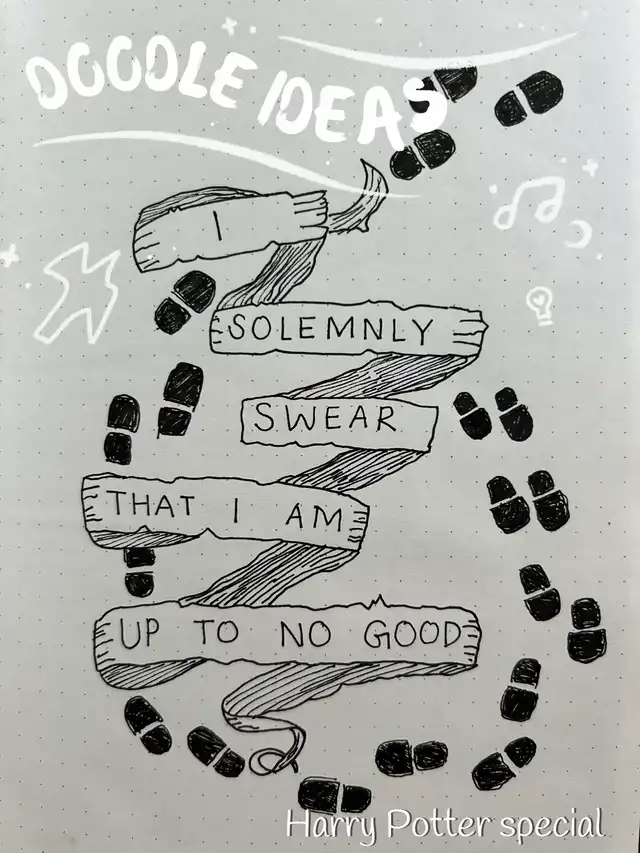 DOODLE IDEAS
I
SOLEMNLY
SWEAR
THAT I AM
UP TO NO GOOD
Harry Potter special